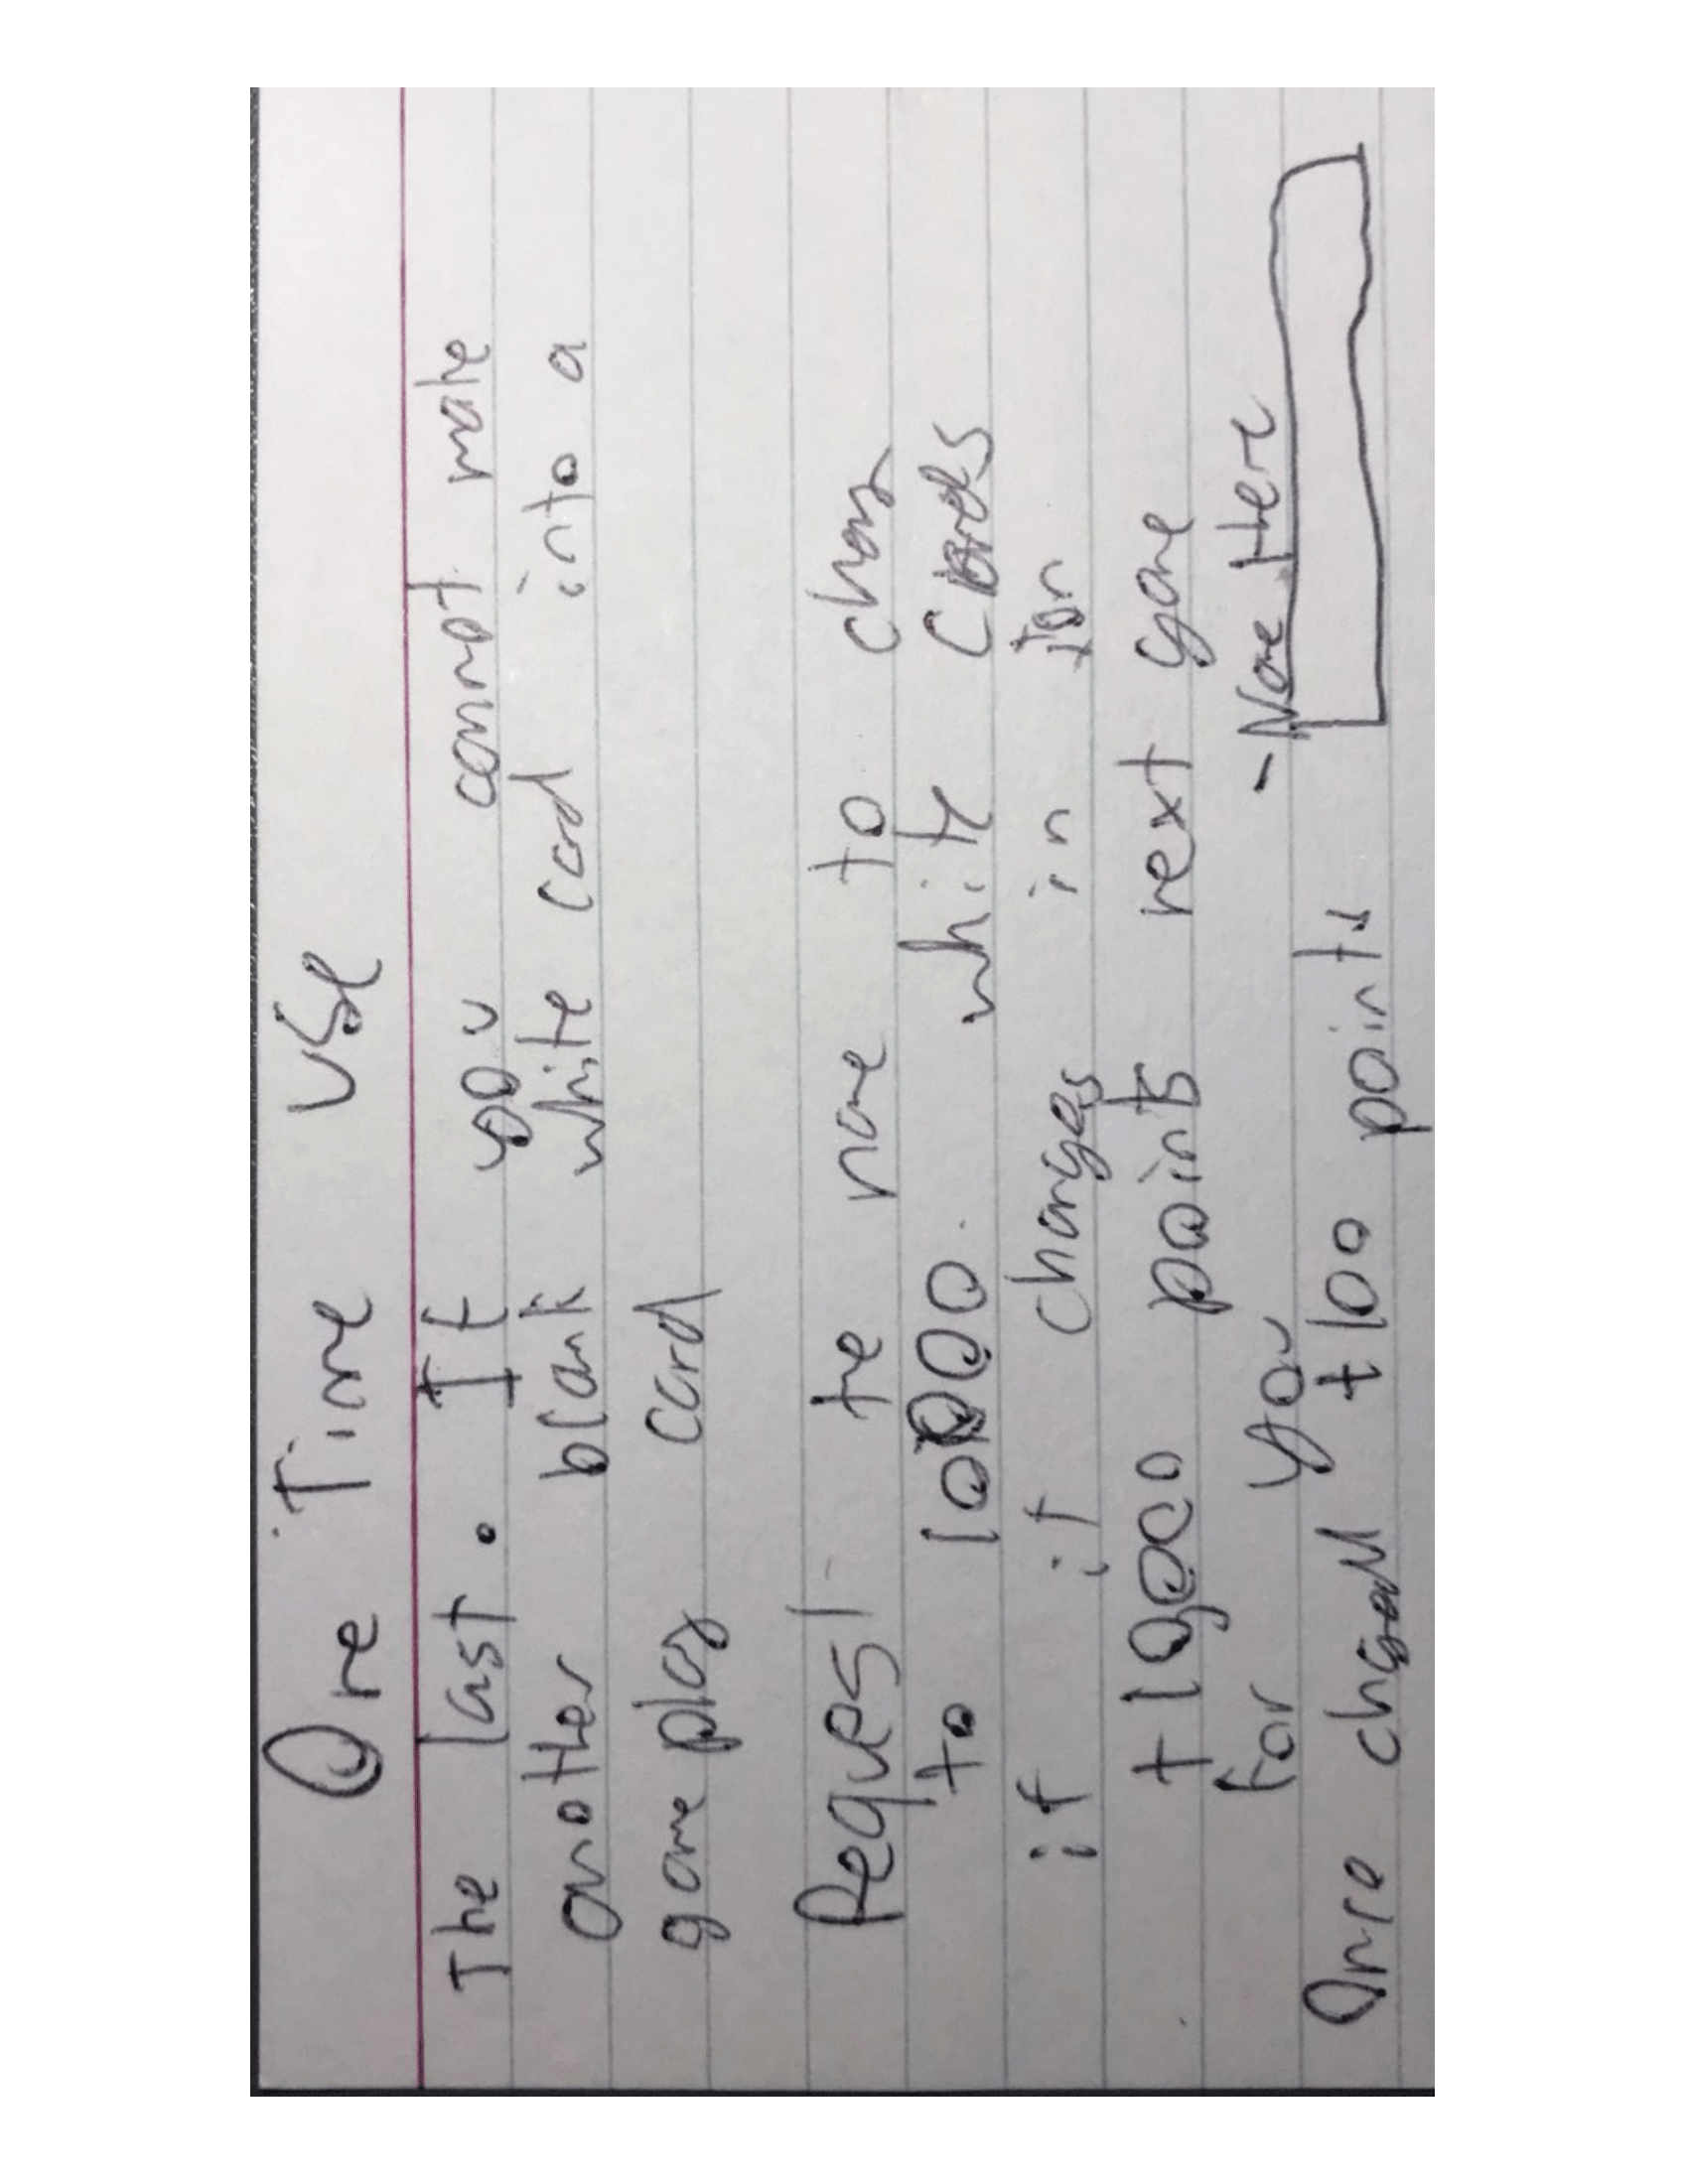 One Time Use
The last. It you cannot make
another blank white card into a
game play card
Request the name to
to 10000 white cards
if it changes in
+10,000 points next game
for you - Name Here
Once +100 points